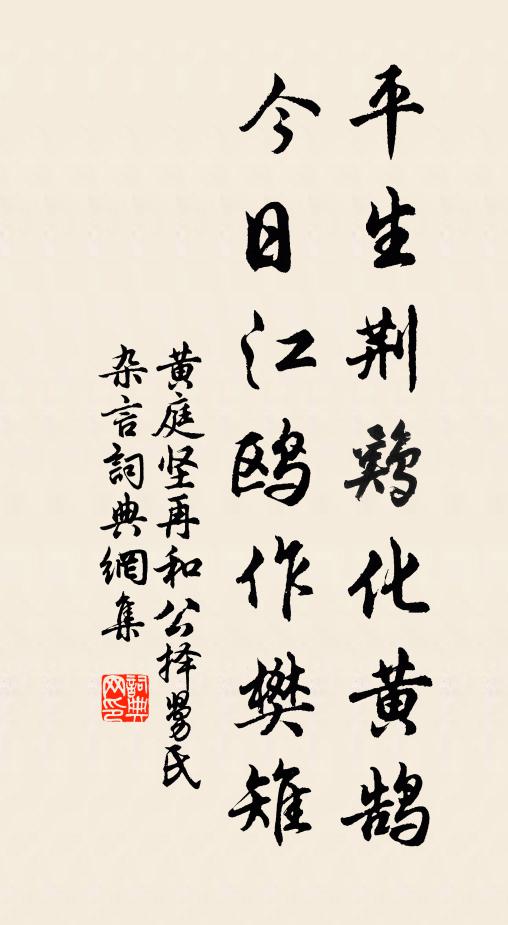 平生荆鷄化黄鹄
今日江鸥作樊雉
黄庭坚再和公择舅氏
杂言詞典網集
詞典
网印